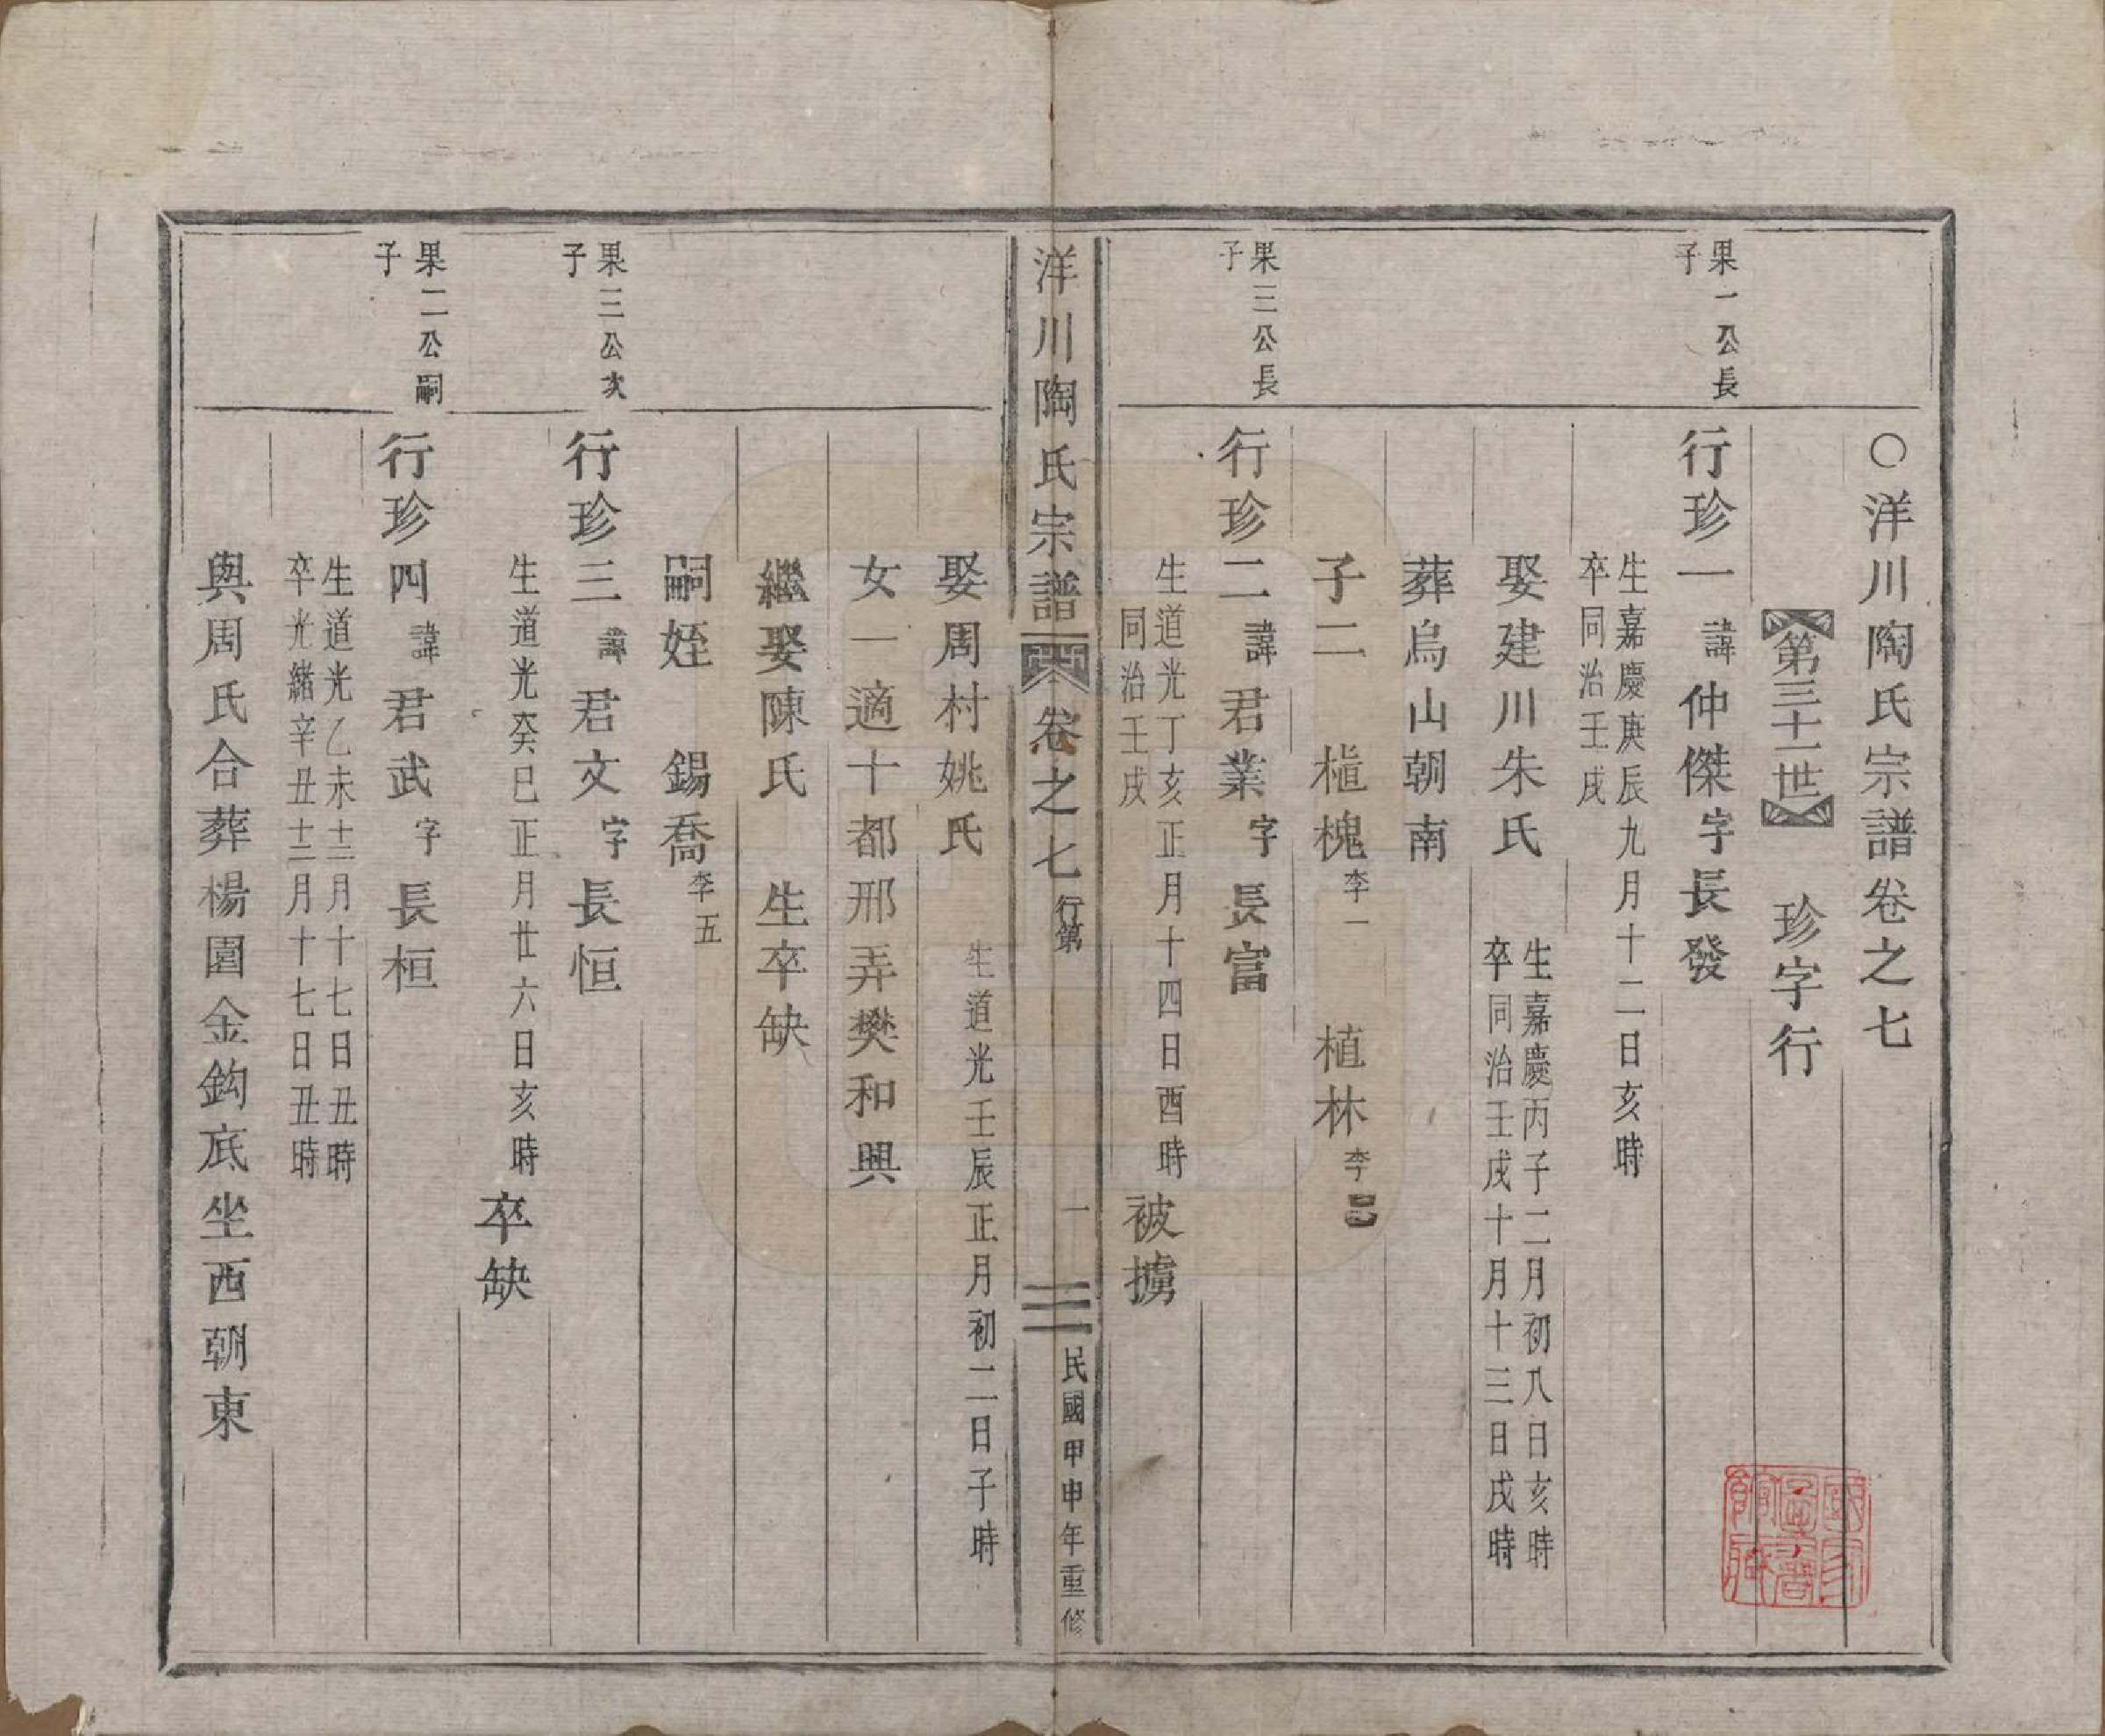 ○洋川陶氏宗譜卷之七
第三十一世 珍字行
果一公長
子
行珍一諱仲傑字長發
生嘉慶庚辰九月十二日亥時
卒同治壬戌
娶建川朱氏
生嘉慶丙子二月初八日亥時
卒同治壬戌十月十三日戌時
葬烏山朝南
子二 植槐李一 植林李
果三公長
子
行珍二諱君業字長富
生道光丁亥正月十四日酉時
同治壬戌
被擄
洋川陶氏宗譜 卷之七 行第 一 民國甲申年重修
娶周村姚氏
生道光壬辰正月初二日子時
女一適十都邢弄樊和興
繼娶陳氏 生卒缺
嗣姪 錫喬李五
果三公次
子
行珍三諱君文字長恒
生道光癸巳正月廿六日亥時
卒缺
果二公嗣
子
行珍四諱君武字長桓
生道光乙未十二月十七日丑時
卒光緒辛丑十二月十七日丑時
與周氏合葬楊園金鈎底坐西朝東
國家圖書館藏